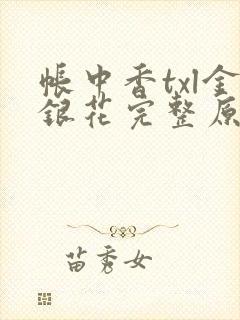 帐中香txl金
银花完整原
苗秀女